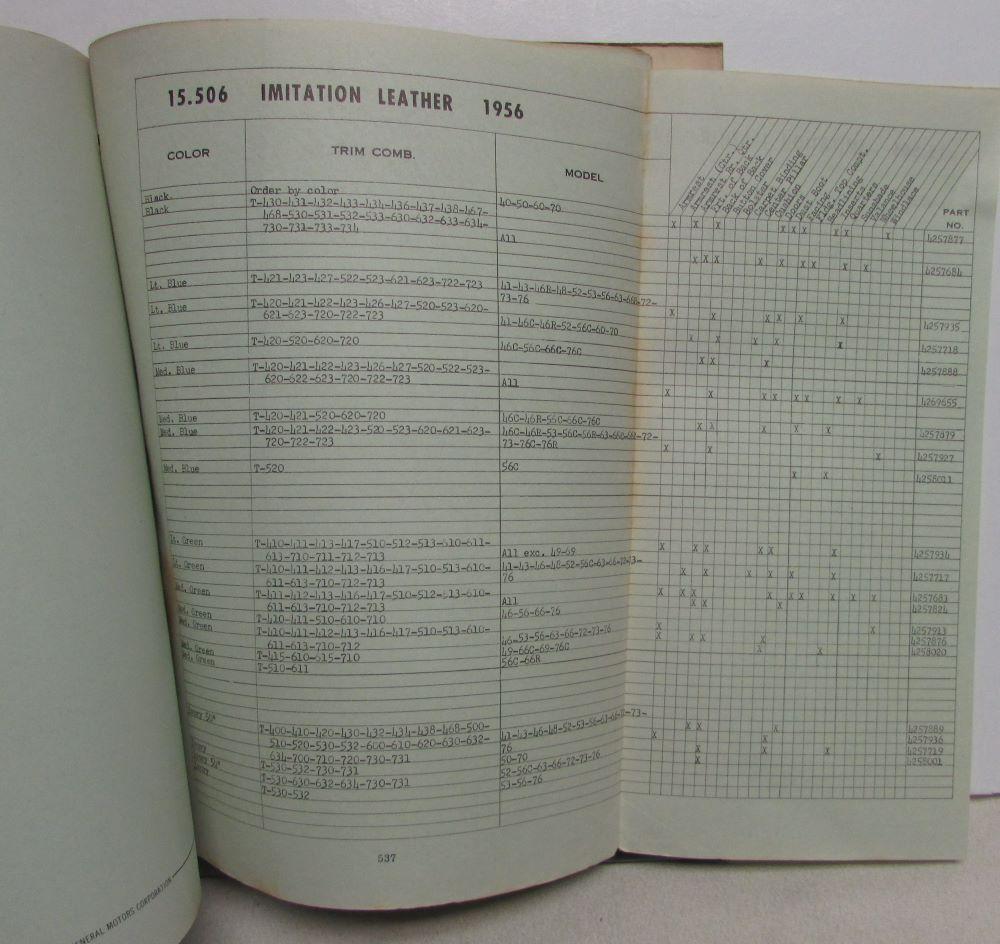 15.506 IMITATION LEATHER 1956
COLOR TRIM COMB. MODEL PART NO.
Armrest
Frt. of Back
Back of Back
Button
Bolster
Carpet Binding
Center Pillar
Cushion
Doors
Dust Boot
Facing
Headlining
Inserts
Quarters
Sunshade
Valance
Windlace
Black. Order by color
Black T-430-431-432-433-434-436-437-438-467- 40-50-60-70
468-530-531-532-533-630-632-633-634-
730-731-733-734 All 4257877
4257684
Lt. Blue T-421-423-427-522-523-621-623-722-723 41-43-46R-48-52-53-56-63-66R-72-
73-76
Lt. Blue T-420-421-422-423-426-427-520-523-620- 4257935
621-623-720-722-723 41-46C-46R-52-56C-60-70
4257718
Lt. Blue T-420-520-620-720 46C-56C-66C-76C
4257888
Med. Blue T-420-421-422-423-426-427-520-522-523-
620-622-623-720-722-723 All
4269655
Med. Blue T-420-421-520-620-720 46C-46R-56C-66C-76C
4257879
Med. Blue T-420-421-422-423-520-523-620-621-623- 46C-46R-53-56C-56R-63-66C-66R-72-
720-722-723 73-76C-76R
4257927
Med. Blue T-520 56C 4258011
Lt. Green T-410-411-413-417-510-512-513-610-611-
613-710-711-712-713 All exc. 49-69 4257934
Lt. Green T-410-411-412-413-416-417-510-513-610- 41-43-46-48-52-56C-63-66-72-73-
611-613-710-712-713 76 4257717
Med. Green T-411-412-413-416-417-510-512-513-610-
611-613-710-712-713 All 4257683
Med. Green T-410-411-510-610-710 46-56-66-76 4257824
Med. Green T-410-411-412-413-416-417-510-513-610- 4257913
611-613-710-712 46-53-56-63-66-72-73-76 4257876
Med. Green T-415-610-615-710 49-66C-69-76C 4258020
Med. Green T-510-611 56C-66R
T-400-410-420-430-432-434-438-468-500- 41-43-46-48-52-53-56-63-66-72-73-
510-520-530-532-600-610-620-630-632- 76 4257889
634-700-710-720-730-731 4257936
T-530-532-730-731 50-70 4257719
T-530-630-632-634-730-731 52-56C-63-66-72-73-76 4258001
T-530-532 53-56-76
537
GENERAL MOTORS CORPORATION